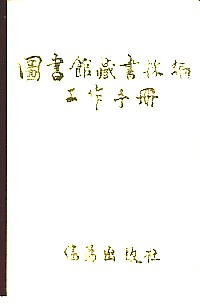 圖書館藏書採編
工作手冊
出版社